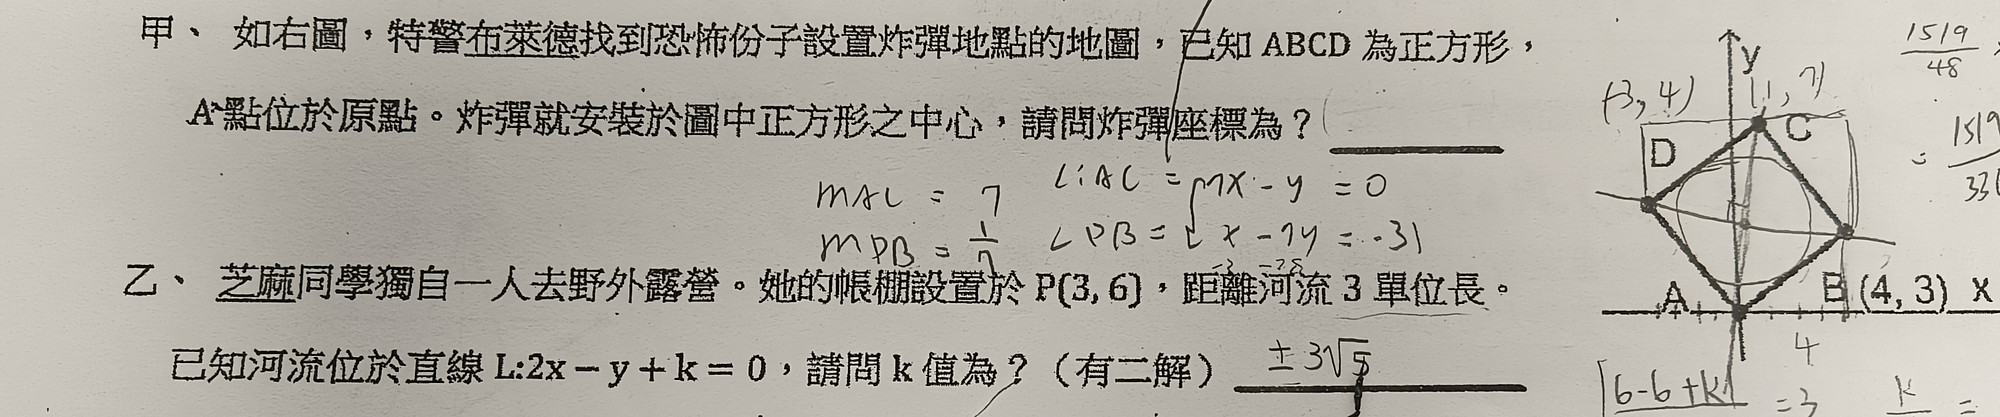 甲、 如右圖，特警布萊德找到恐怖份子設置炸彈地點的地圖，已知 ABCD 為正方形，
A 點位於原點。炸彈就安裝於圖中正方形之中心，請問炸彈座標為？
mAC = 7
L:AC = 7x - y = 0
mDB =
x - 7y = -31
乙、 芝麻同學獨自一人去野外露營。她的帳棚設置於 P(3, 6)，距離河流 3 單位長。
已知河流位於直線 L:2x − y + k = 0，請問 k 值為？（有二解）
±3√5
y
(-3, 4)
(1, 7)
C
D
A
B (4, 3) x
4
1519
48
= 1519
|6-6+k|
= 3
k
=